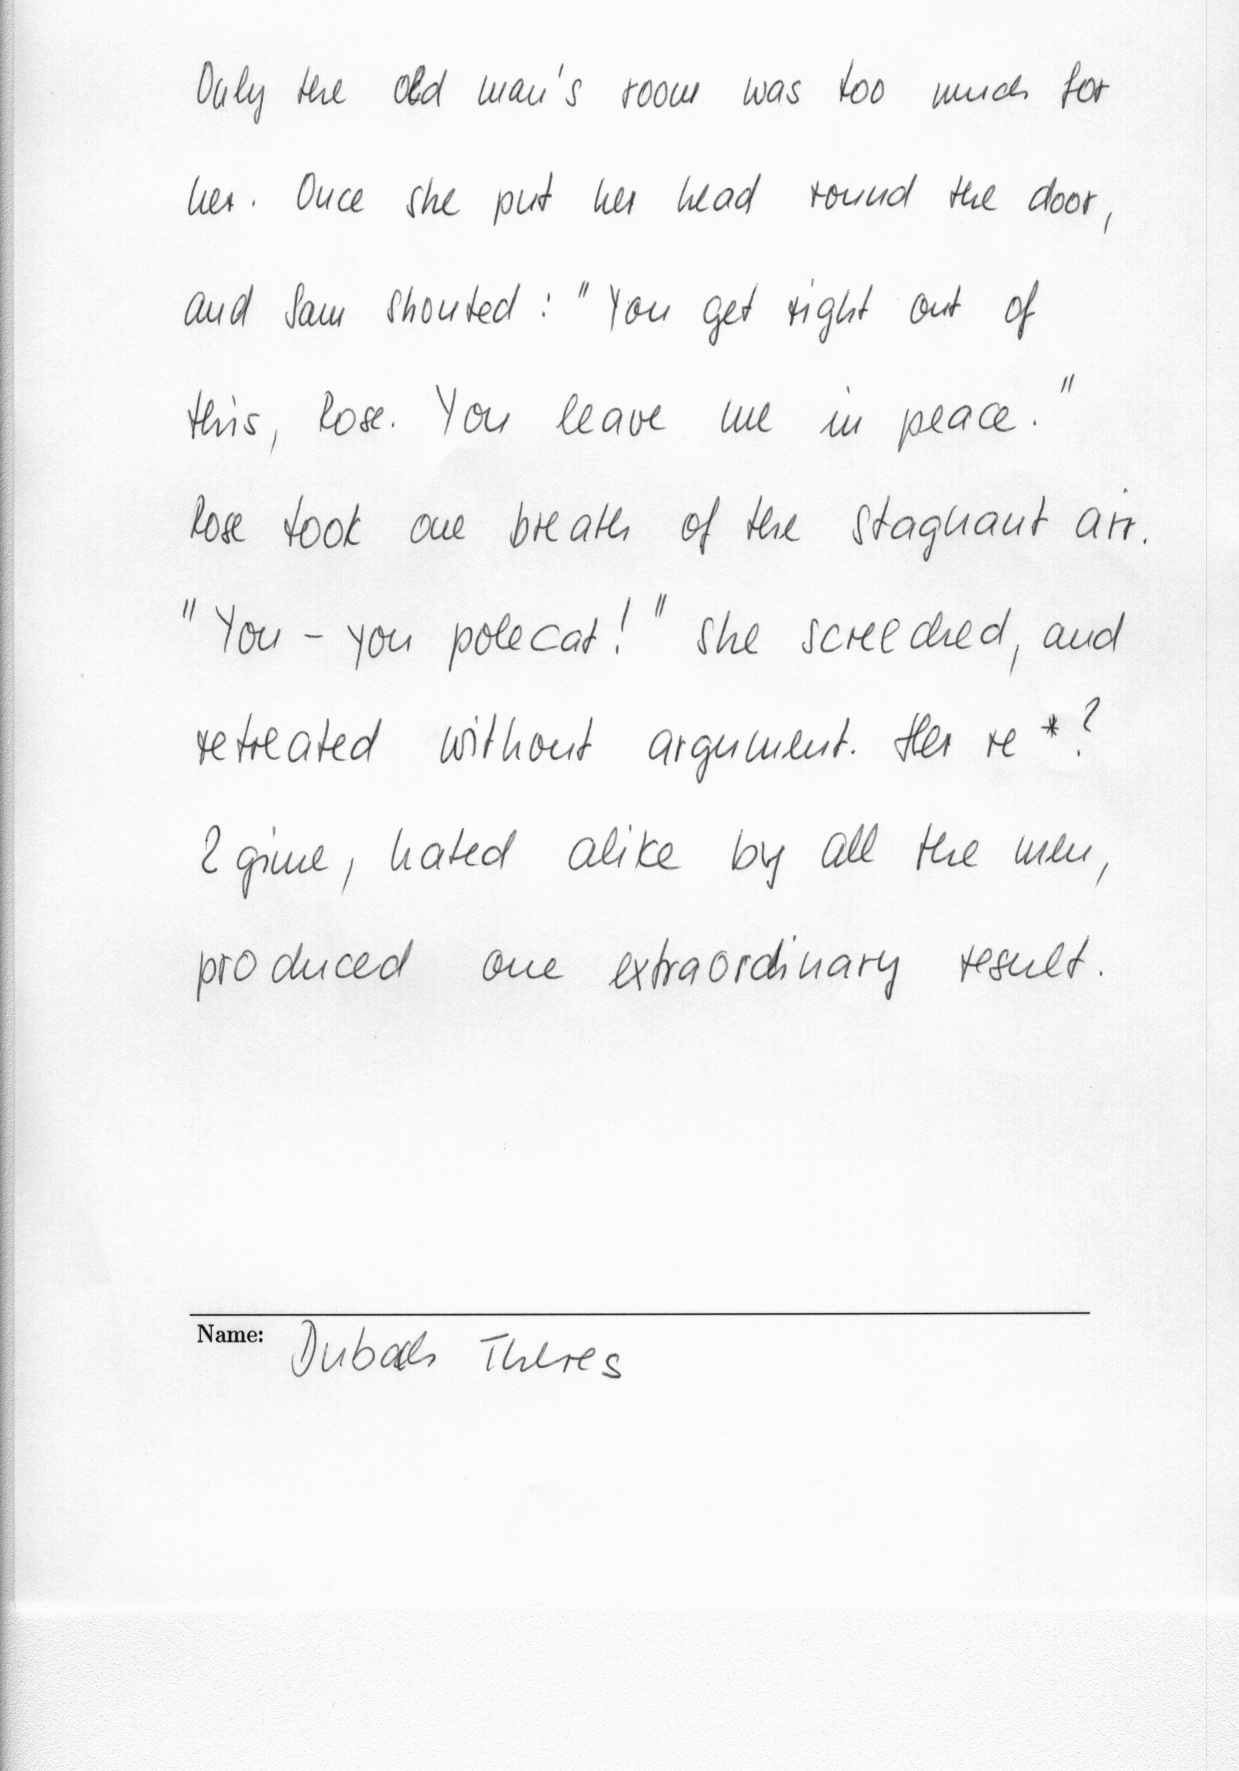 Only the old man's room was too much for
her. Once she put her head round the door,
and Sam shouted : "You get right out of
this, Rose. You leave me in peace."
Rose took one breath of the stagnant air.
"You - you polecat!" she screeched, and
retreated without argument. Her re *?
?gime, hated alike by all the men,
produced one extraordinary result.
Name: Dubach Theres